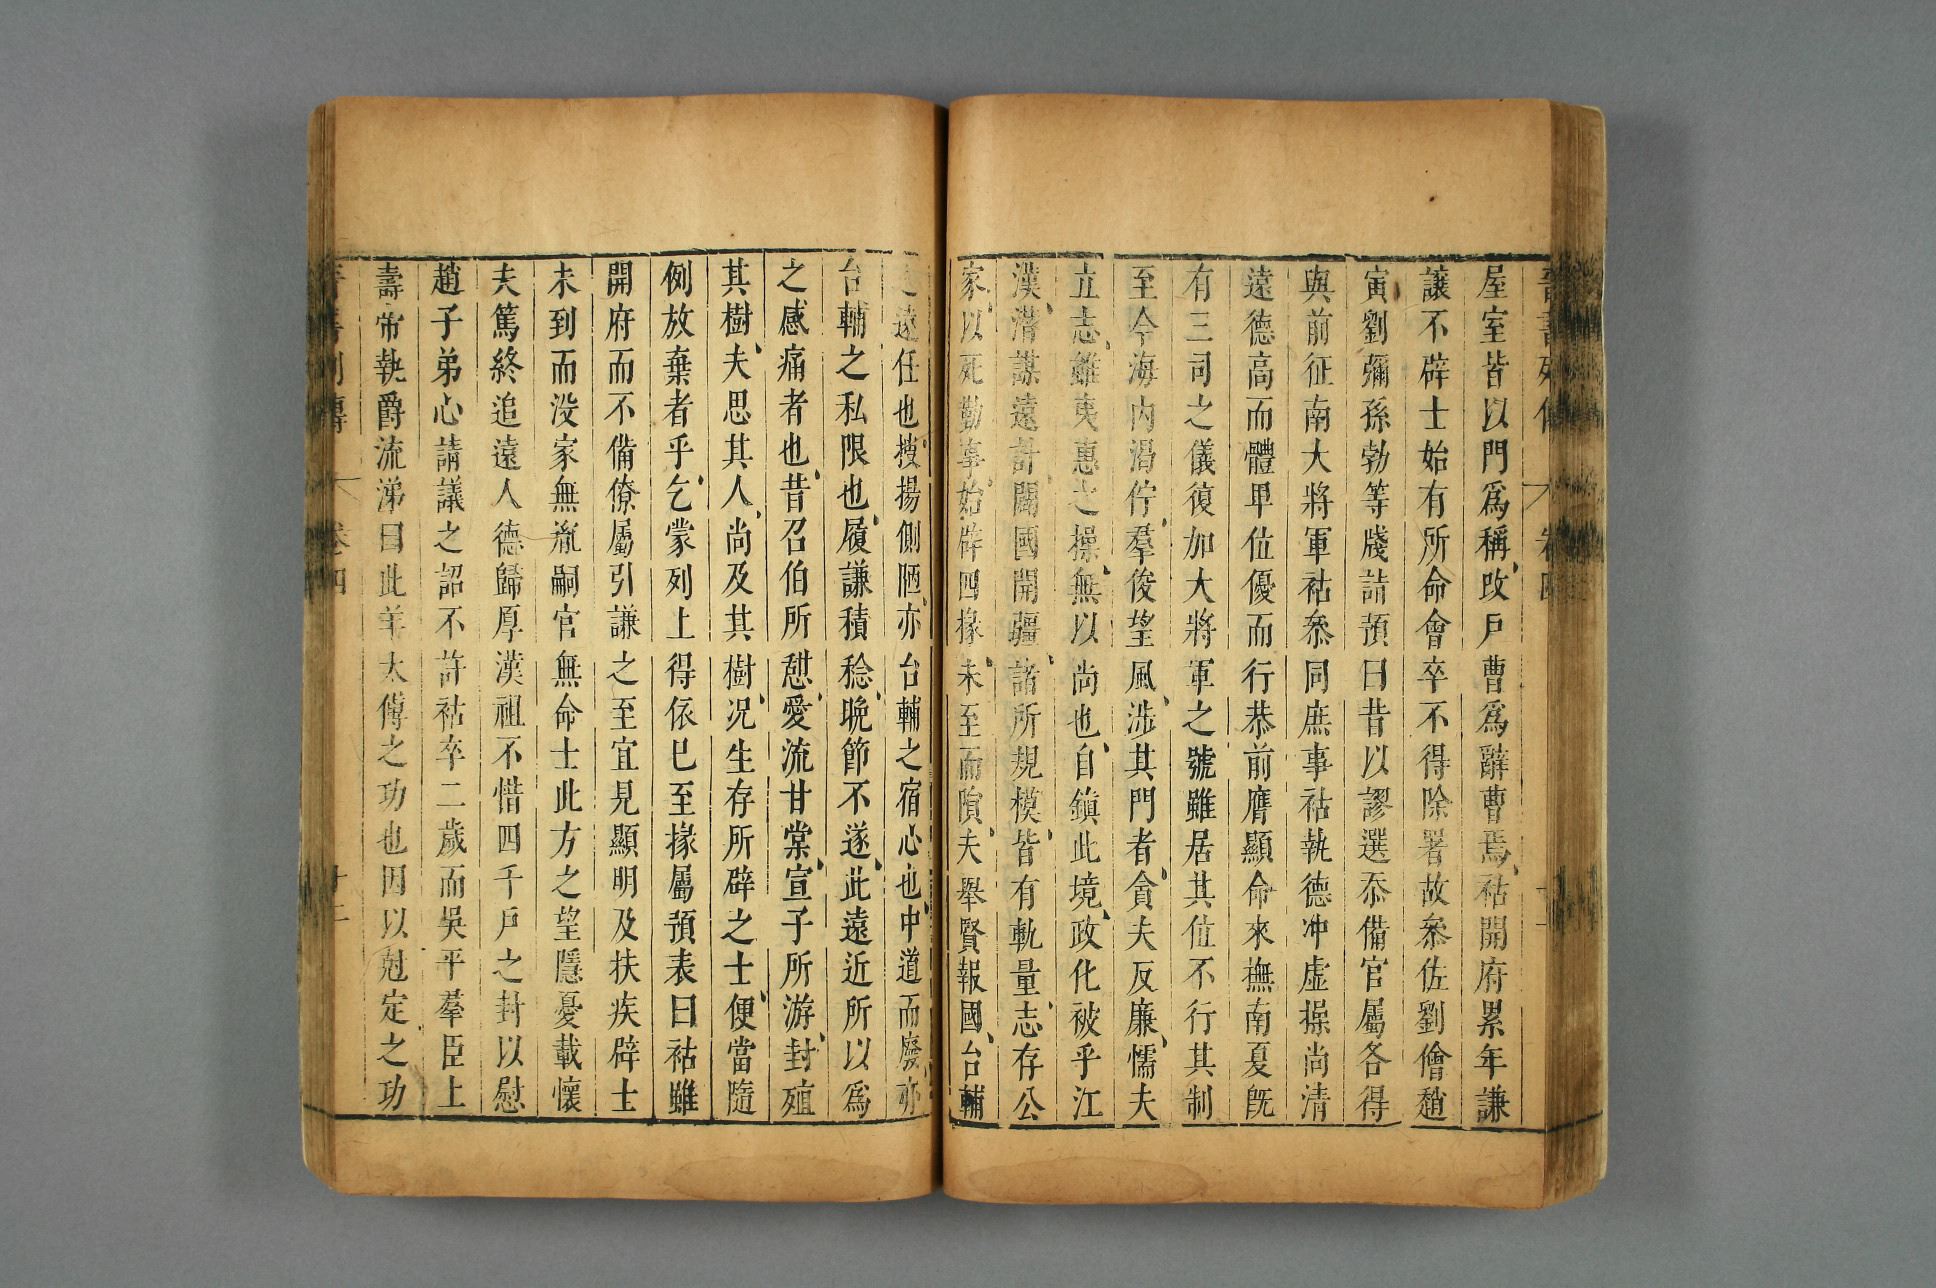 晉書列傳 卷四 十二
屋室皆以門爲稱改戶曹爲辭曹焉祜開府累年謙
讓不辟士始有所命會卒不得除署故叅佐劉儈趙
寅劉彌孫勃等牋詣預曰昔以謬選忝備官屬各得
與前征南大將軍祜叅同庶事祜執德沖虛操尚清
遠德高而體卑位優而行恭前膺顯命來撫南夏旣
有三司之儀復加大將軍之號雖居其位不行其制
至今海內渴佇羣俊望風涉其門者貪夫反廉懦夫
立志雖夷惠之操無以尚也自鎮此境政化被乎江
漢潛謀遠計闢國開疆諸所規模皆有軌量志存公
家以死勤事始辟四掾未至而隕夫舉賢報國台輔
之遠任也搜揚側陋亦台輔之宿心也中道而廢亦
台輔之私限也履謙積稔晚節不遂此遠近所以爲
之感痛者也昔召伯所憇愛流甘棠宣子所游封殖
其樹夫思其人尚及其樹况生存所辟之士便當隨
例放棄者乎乞蒙列上得依已至掾屬預表曰祜雖
開府而不備僚屬引謙之至宜見顯明及扶疾辟士
未到而没家無胤嗣官無命士此方之望隱憂載懷
夫篤終追遠人德歸厚漢祖不惜四千戶之封以慰
趙子弟心請議之詔不許祜卒二歲而吳平羣臣上
壽帝執爵流涕曰此羊太傅之功也因以尅定之功
晉書列傳 卷四 十二